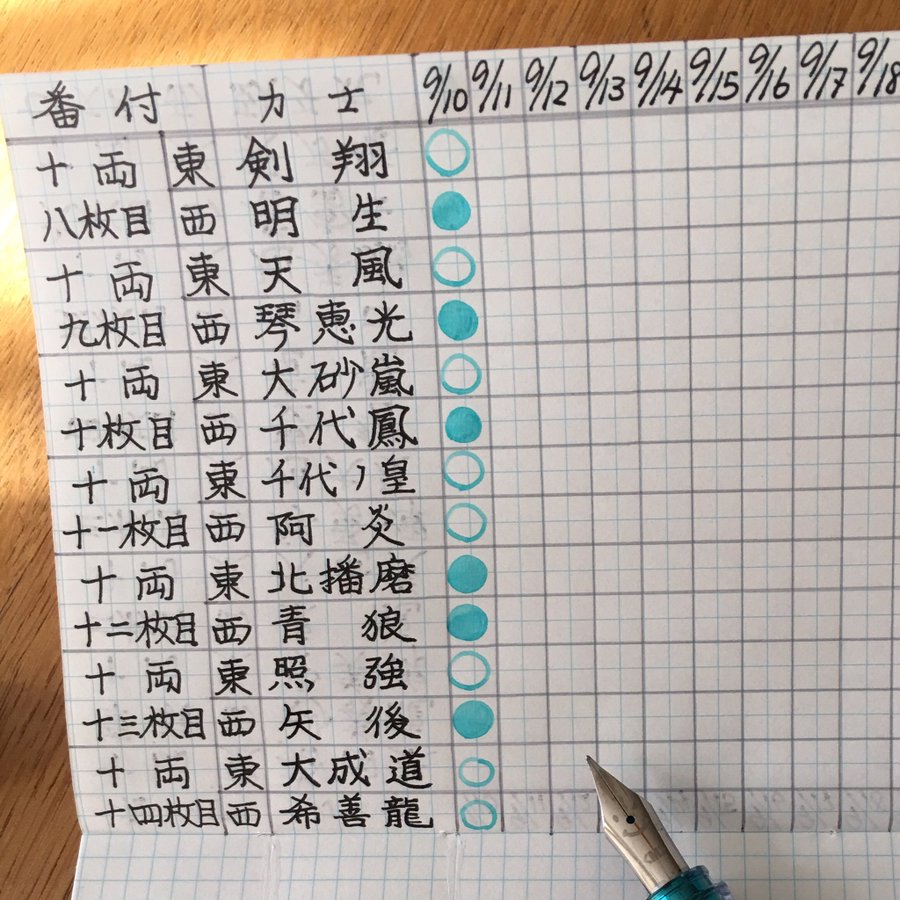 番付 力士 9/10 9/11 9/12 9/13 9/14 9/15 9/16 9/17 9/18
十両 東 剣翔
八枚目 西 明生
十両 東 天風
九枚目 西 琴恵光
十両 東 大砂嵐
十枚目 西 千代鳳
十両 東 千代ノ皇
十一枚目 西 阿炎
十両 東 北播磨
十二枚目 西 青狼
十両 東 照強
十三枚目 西 矢後
十両 東 大成道
十四枚目 西 希善龍